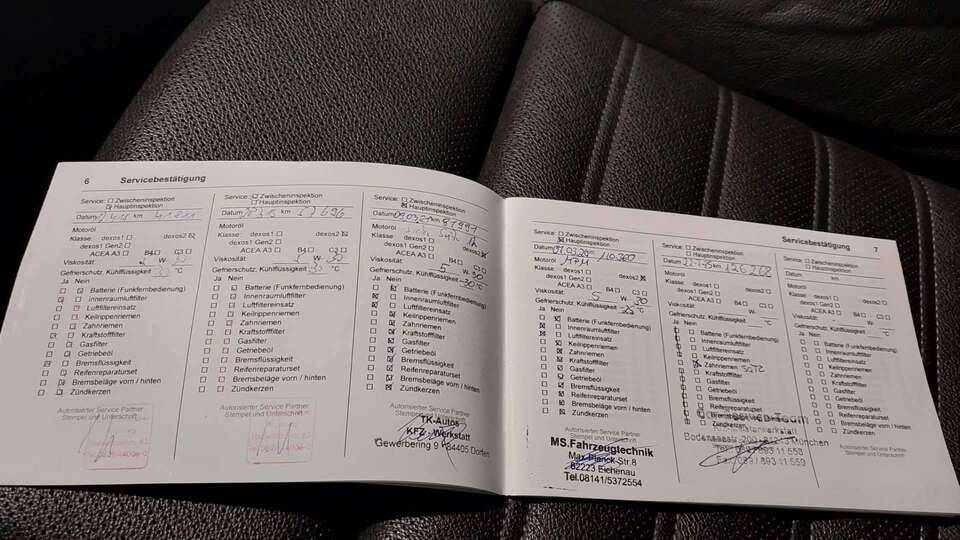 6 Servicebestätigung
Service: Zwischeninspektion
Hauptinspektion
Datum km
Motoröl
Klasse: dexos1 dexos2
dexos1 Gen2
ACEA A3 B4 C3
Viskosität: W- 30
Gefrierschutz, Kühlflüssigkeit °C
Ja Nein
Batterie (Funkfernbedienung)
Innenraumluftfilter
Luftfiltereinsatz
Keilrippenriemen
Zahnriemen
Kraftstofffilter
Gasfilter
Getriebeöl
Bremsflüssigkeit
Reifenreparaturset
Bremsbeläge vorn / hinten
Zündkerzen
Autorisierter Service Partner
Stempel und Unterschrift
Service: Zwischeninspektion
Hauptinspektion
Datum km 57696
Motoröl
Klasse: dexos1 dexos2
dexos1 Gen2
ACEA A3 B4 C3
Viskosität: W- 30
Gefrierschutz, Kühlflüssigkeit °C
Ja Nein
Batterie (Funkfernbedienung)
Innenraumluftfilter
Luftfiltereinsatz
Keilrippenriemen
Zahnriemen
Kraftstofffilter
Gasfilter
Getriebeöl
Bremsflüssigkeit
Reifenreparaturset
Bremsbeläge vorn / hinten
Zündkerzen
Autorisierter Service Partner
Stempel und Unterschrift
Service: Zwischeninspektion
Hauptinspektion
Datum 09.03.21 km 81991
Motoröl
Klasse: dexos1 dexos2
dexos1 Gen2
ACEA A3 B4 C3
Viskosität: 5 W- 30
Gefrierschutz, Kühlflüssigkeit -30 °C
Ja Nein
Batterie (Funkfernbedienung)
Innenraumluftfilter
Luftfiltereinsatz
Keilrippenriemen
Zahnriemen
Kraftstofffilter
Gasfilter
Getriebeöl
Bremsflüssigkeit
Reifenreparaturset
Bremsbeläge vorn / hinten
Zündkerzen
Autorisierter Service Partner
Stempel und Unterschrift
TK-Autos
KFZ - Werkstatt
Gewerbering 9 84405 Dorfen
Servicebestätigung 7
Service: Zwischeninspektion
Hauptinspektion
Datum km 110.360
Motoröl MPM
Klasse: dexos1 dexos2
dexos1 Gen2
ACEA A3 B4 C3
Viskosität: 5 W- 30
Gefrierschutz, Kühlflüssigkeit °C
Ja Nein
Batterie (Funkfernbedienung)
Innenraumluftfilter
Luftfiltereinsatz
Keilrippenriemen
Zahnriemen
Kraftstofffilter
Gasfilter
Getriebeöl
Bremsflüssigkeit
Reifenreparaturset
Bremsbeläge vorn / hinten
Zündkerzen
Autorisierter Service Partner
Stempel und Unterschrift
MS.Fahrzeugtechnik
Max-Planck-Str.8
82223 Eichenau
Tel.08141/5372554
Service: Zwischeninspektion
Hauptinspektion
Datum km 126208
Motoröl
Klasse: dexos1 dexos2
dexos1 Gen2
ACEA A3 B4 C3
Viskosität: W-
Gefrierschutz, Kühlflüssigkeit °C
Ja Nein
Batterie (Funkfernbedienung)
Innenraumluftfilter
Luftfiltereinsatz
Keilrippenriemen
Zahnriemen SATZ
Kraftstofffilter
Gasfilter
Getriebeöl
Bremsflüssigkeit
Reifenreparaturset
Bremsbeläge vorn / hinten
Zündkerzen
Team
München
Service: Zwischeninspektion
Hauptinspektion
Datum km
Motoröl
Klasse: dexos1 dexos2
dexos1 Gen2
ACEA A3 B4 C3
Viskosität: W-
Gefrierschutz, Kühlflüssigkeit °C
Ja Nein
Batterie (Funkfernbedienung)
Innenraumluftfilter
Luftfiltereinsatz
Keilrippenriemen
Zahnriemen
Kraftstofffilter
Gasfilter
Getriebeöl
Bremsflüssigkeit
Reifenreparaturset
Bremsbeläge vorn / hinten
Zündkerzen
Autorisierter Service Partner
Stempel und Unterschrift